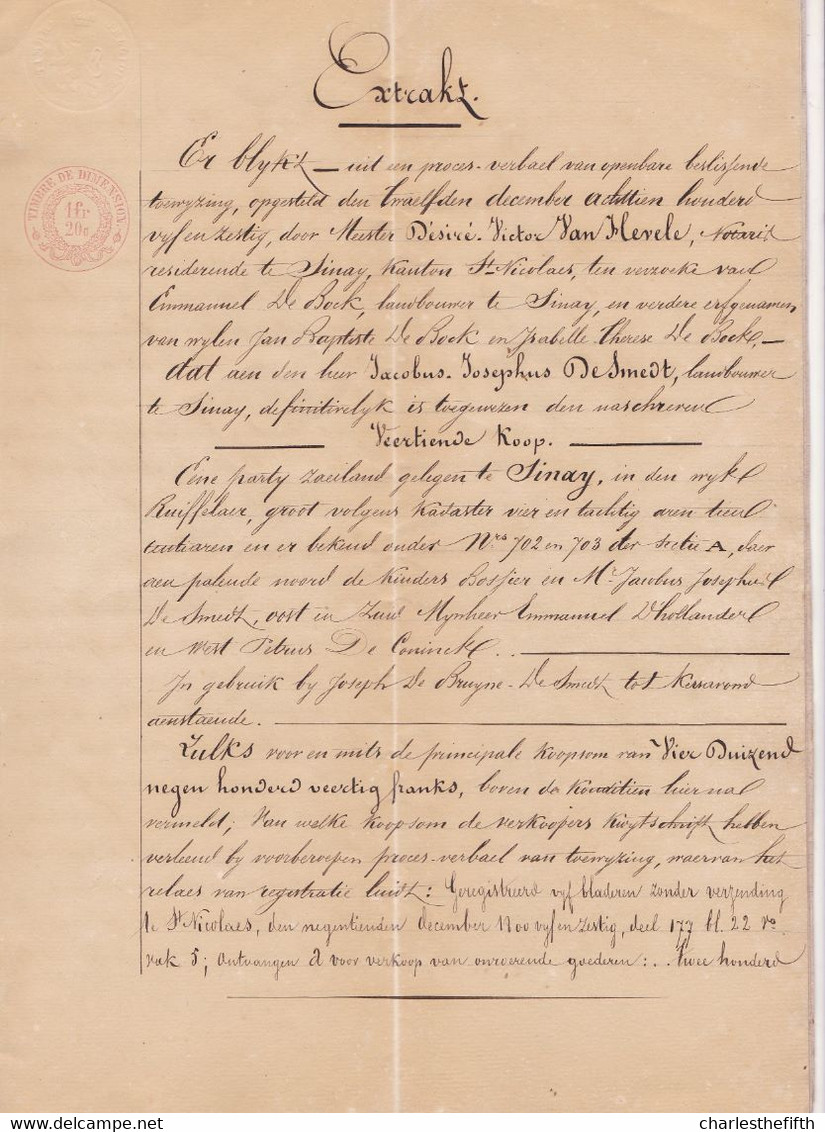 Extrakt.
TIMBRE DE DIMENSION
1 fr
20c
Er blykt — uit een proces-verbael van openbare beslissende
toewyzing, opgesteld den twaelfden december achttien honderd
vyf en zestig, door Meester Désiré-Victor Van Hevele, Notaris
residerende te Sinay, kanton St Nicolaes, ten verzoeke van
Emmanuel De Bock, landbouwer te Sinay, en verdere erfgenamen
van wylen Jan Baptiste De Bock en Isabelle Therese De Bock, —
dat aen den heer Jacobus-Josephus De Smedt, landbouwer
te Sinay, definitivelyk is toegewezen den naschreven
Veertiende Koop.
Eene party zaeiland gelegen te Sinay, in den wyk
Ruiffelaer, groot volgens kadaster vier en tachtig aren tien
centiaren en er bekend onder Nrs 702 en 703 der sectie A, daer
aen palende noord de kinders Bossier en Mr Jacobus Josephus
De Smedt, oost en zuid Mynheer Emmanuel D'hollander
en west Petrus De Coninck..
In gebruik by Joseph De Bruyne-De Smedt tot Kersavond
aenstaende.
Zulks voor en mits de principale koopsom van Vier Duizend
negen honderd veertig franks, boven de konditien hierna
vermeld; Van welke koopsom de verkoopers kwytschrift hebben
verleend by voorberoepen proces-verbael van toewyzing, waervan het
relaes van registratie luidt: Geregistreerd vyf bladeren zonder verzending
te St Nicolaes, den negentienden december 1800 vyf en zestig, deel 177 bl. 22 vo.
vak 5; ontvangen d voor verkoop van onroerende goederen:.. twee honderd
charlesthefifth